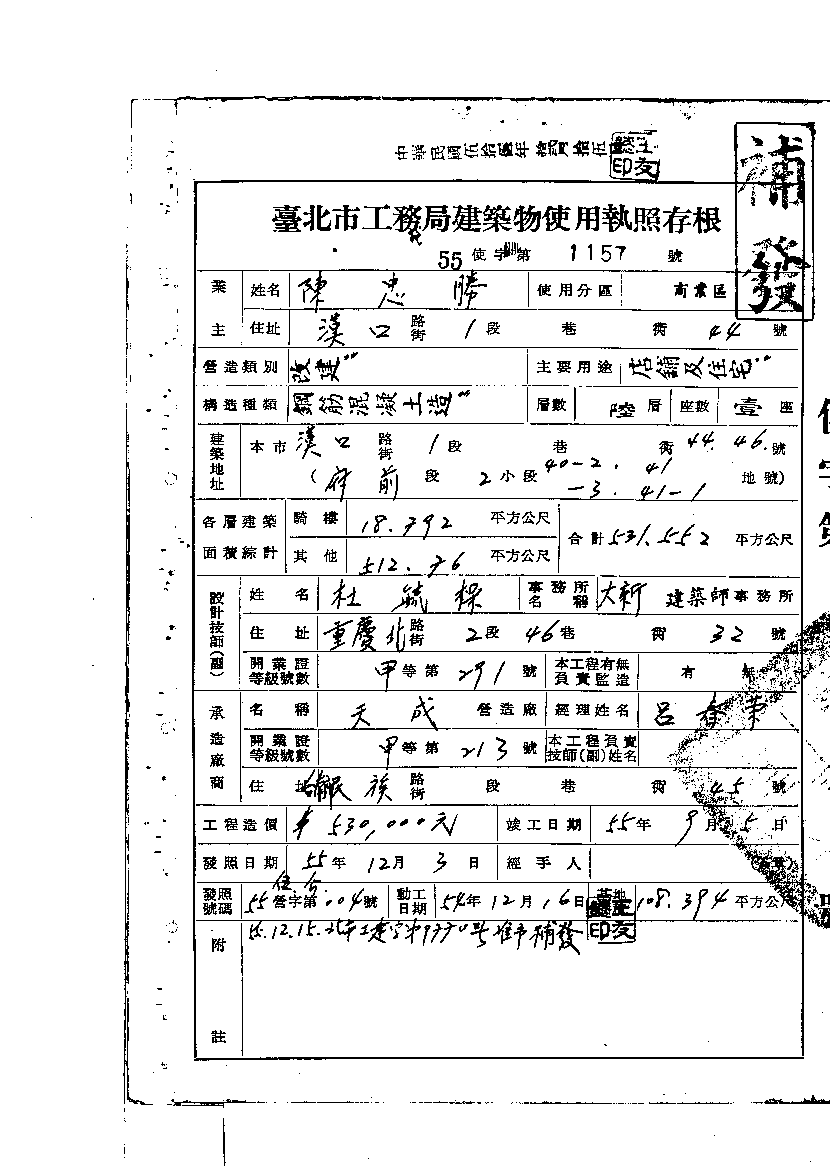 補發
中華民國伍拾伍年拾貳月拾伍日
臺北市工務局建築物使用執照存根
55 使字第 1157 號
業主 姓名 陳忠勝 使用分區 商業區
住址 漢口 路街 1段 巷 衖 44 號
營造類別 改建 主要用途 店鋪及住宅
構造種類 鋼筋混凝土造 層數 陸層 座數 壹座
建築地址 本市 漢口 路街 1段 巷 衖 44.46.號
(府前 段 2小段 40-2. 41 -3. 41-1 地號)
各層建築面積綜計 騎樓 18.792 平方公尺 合計 531.552 平方公尺
其他 512.76 平方公尺
設計技師(副) 姓名 杜毓 事務所名稱 大新 建築師事務所
住址 重慶北 路街 2段 46巷 衖 32 號
開業證等級號數 甲等第 291 號 本工程有無負責監造 有 無
承造廠商 名稱 天成 營造廠 經理姓名 呂春
開業證等級號數 甲等第 213 號 本工程負責技師(副)姓名
住址 民族 路街 段 巷 衖 45 號
工程造價 $ 530,000元 竣工日期 55年 9月 5日
發照日期 55年 12月 3日 經手人
發照號碼 55 營字第 004號 動工日期 54年 12月 16日 基地 108.394 平方公尺
附註 55.12.15. 號准予補發